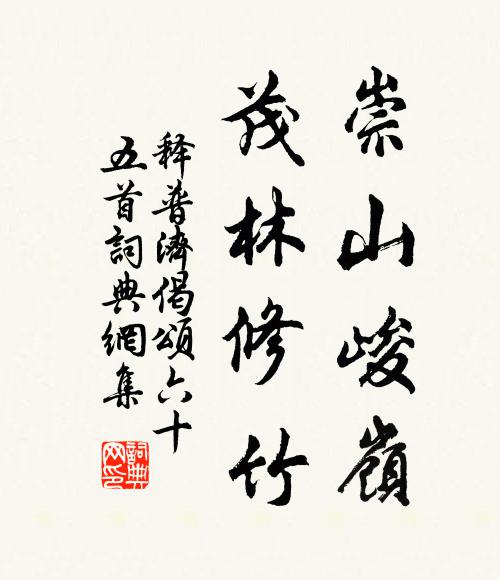 崇山峻嶺
茂林修竹
释普濟偈頌六十
五首詞典網集
詞典
网印